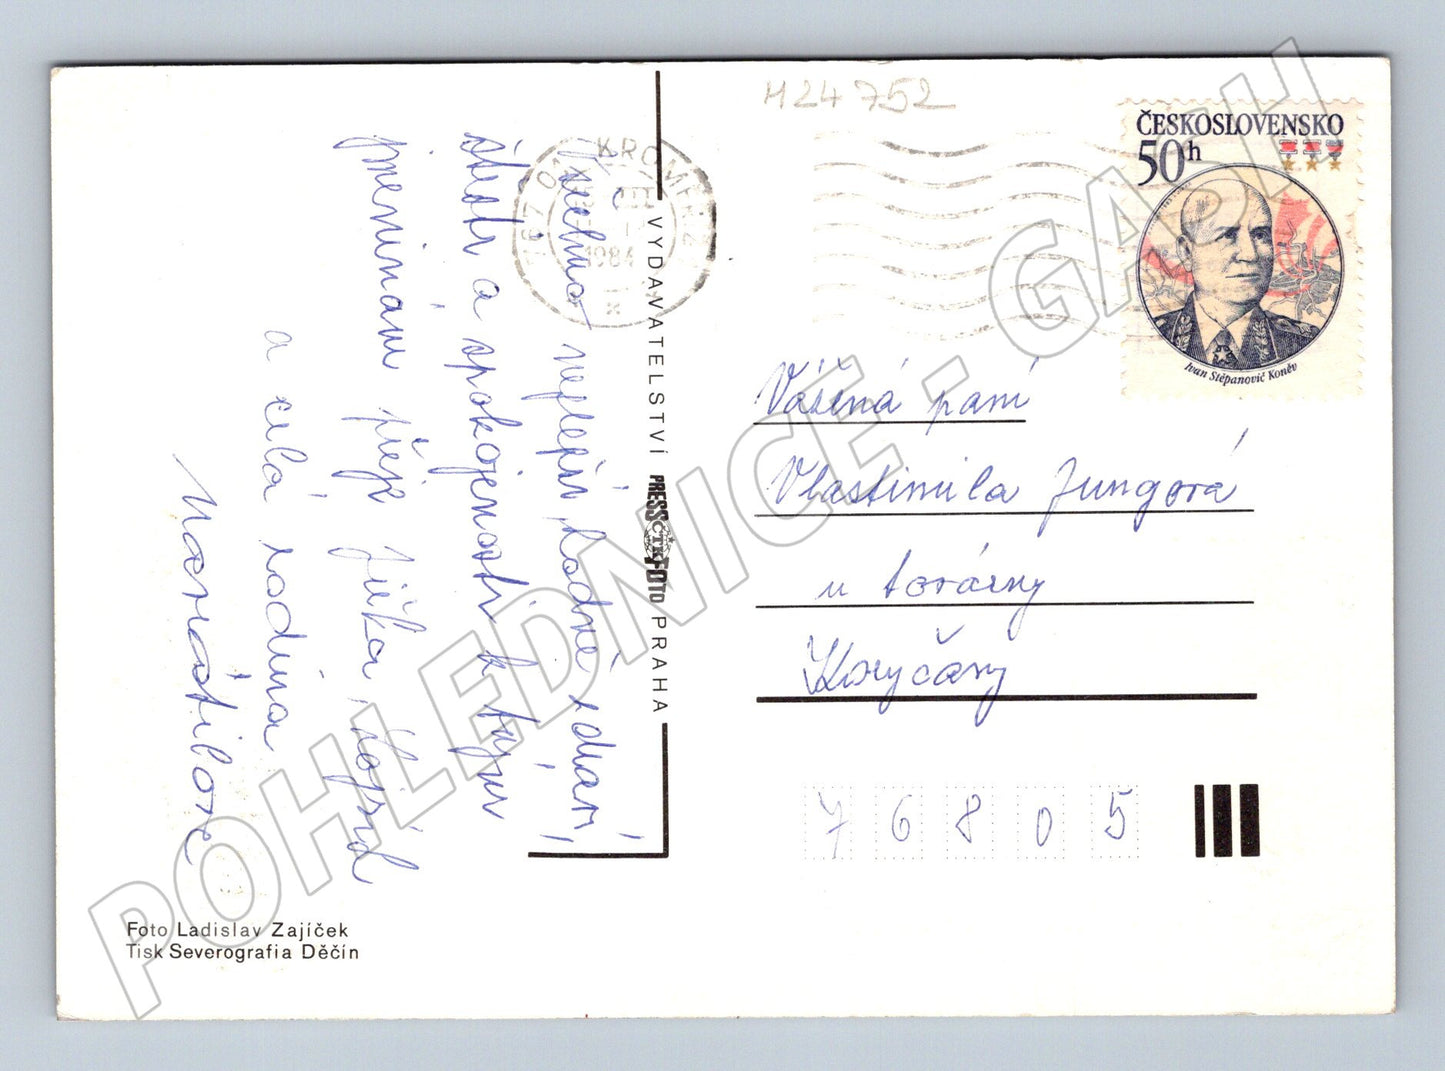 M24752
ČESKOSLOVENSKO
50h
Ivan Stěpanovič Koněv
767 01 KROMĚŘÍŽ
1984
Všechno nejlepší, hodně zdraví,
štěstí a spokojenosti k tvým
jmeninám přeje Jiřka, Ilgrid
a celá rodina
Navrátilové
VYDAVATELSTVÍ PRESSFOTO PRAHA
ČTK
Vážená paní
Vlastimila Jungová
u továrny
Koryčany
76805
Foto Ladislav Zajíček
Tisk Severografia Děčín
POHLEDNICE - GASH